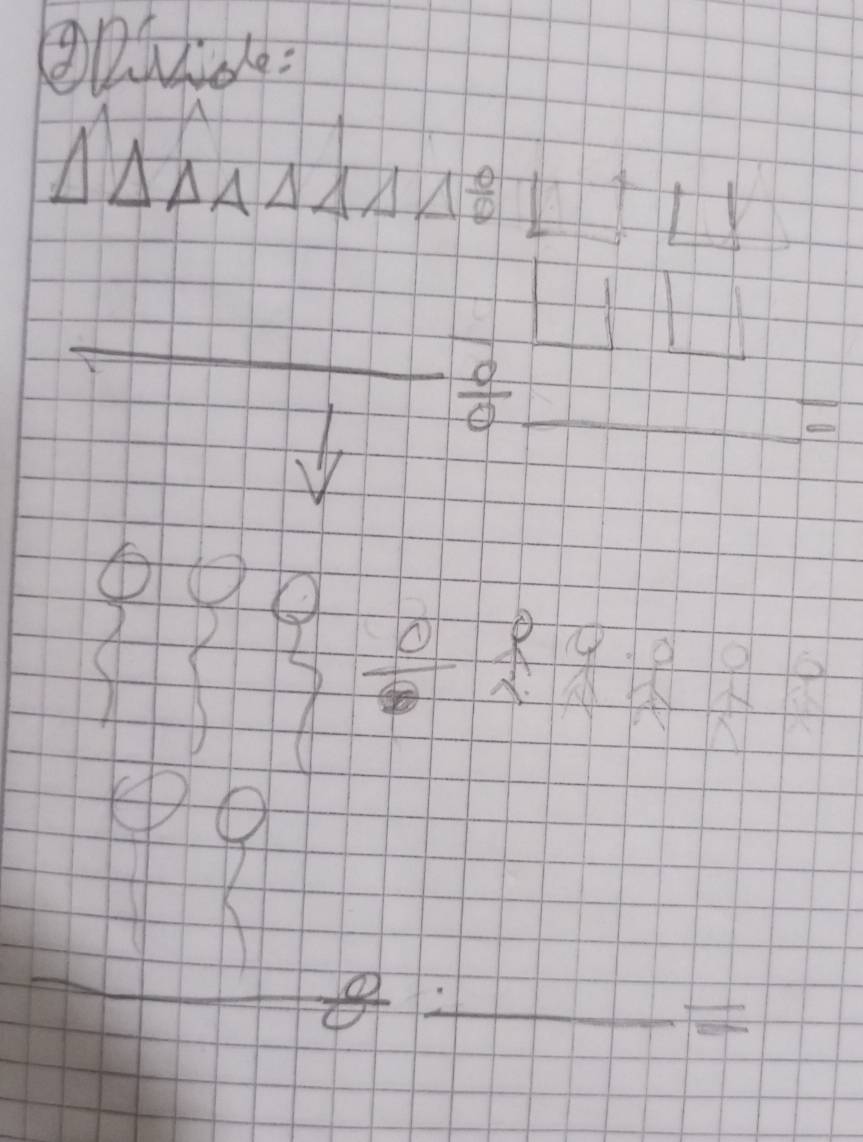 ② Divide:
÷
÷ =
÷
÷ =